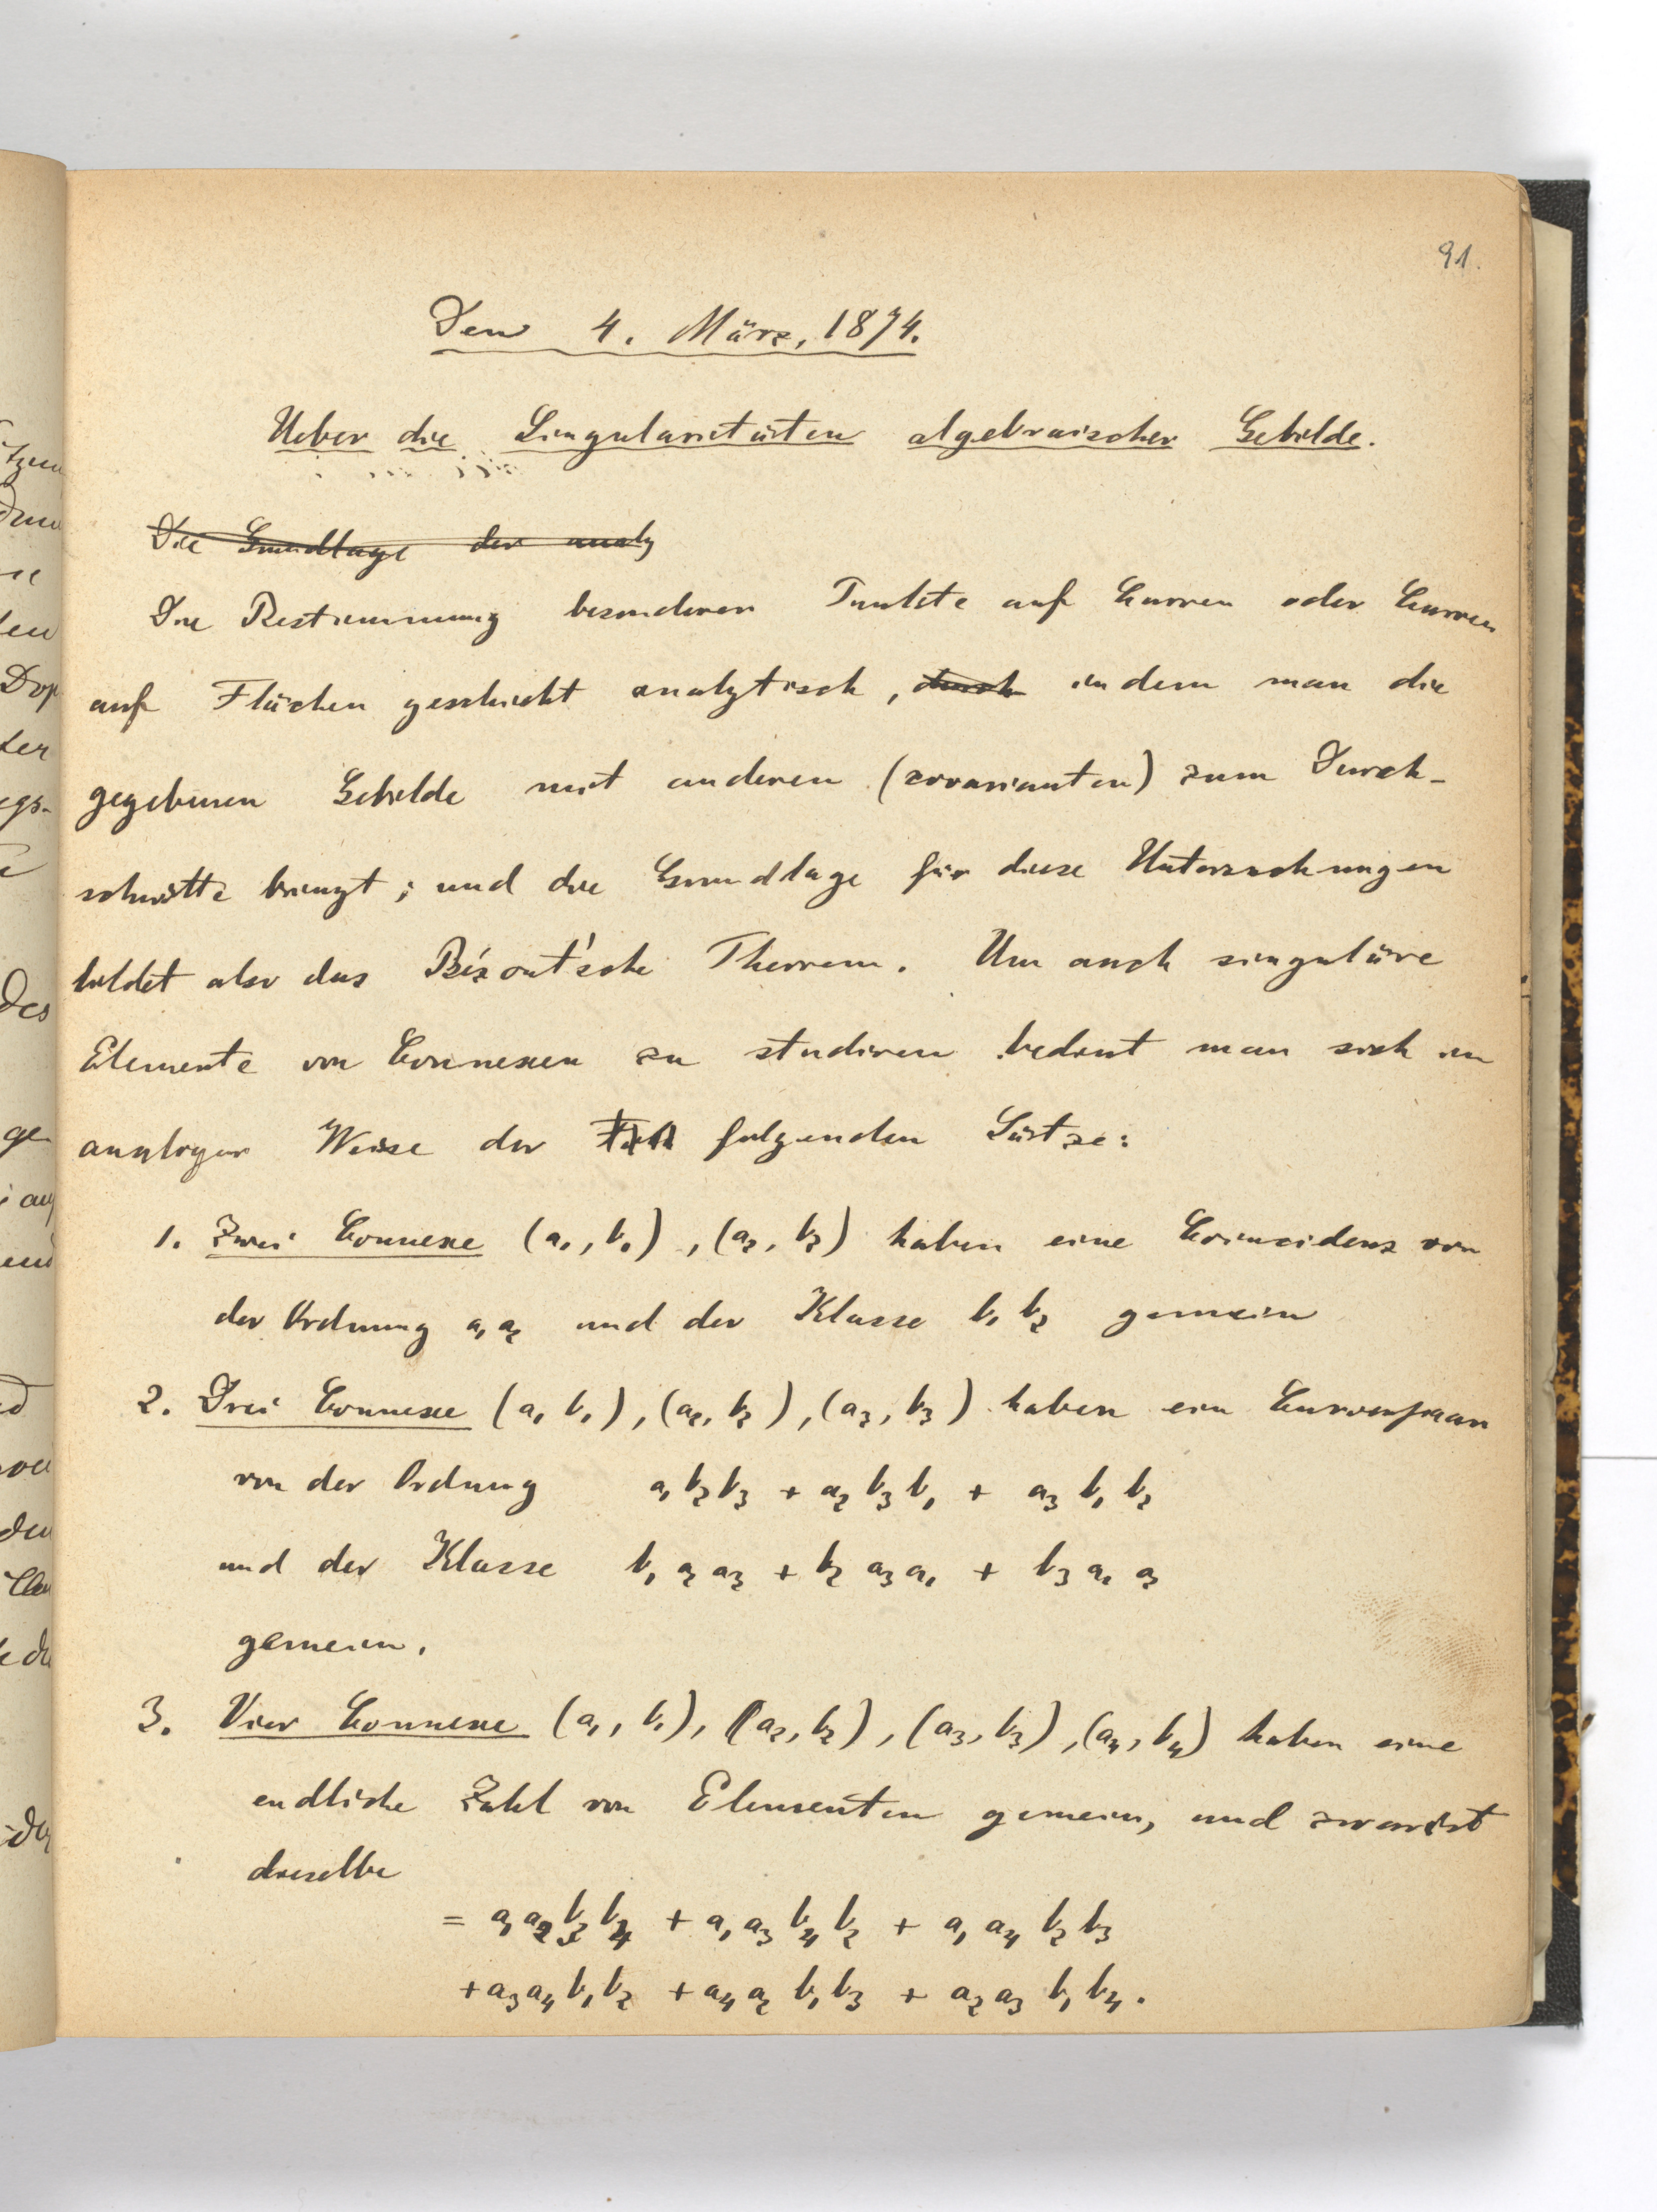 91.
Den 4. März, 1874.
Ueber die Singularitäten algebraischer Gebilde.
Die Grundlage der analy
Die Bestimmung besonderer Punkte auf Curven oder Curven
auf Flächen geschieht analytisch, durch indem man die
gegebenen Gebilde mit anderen (covarianten) zum Durch-
schnitte bringt; und die Grundlage für diese Untersuchungen
bildet also das Bézout'sche Theorem. Um auch singuläre
Elemente von Connexen zu studiren bedient man sich in
analoger Weise der folgenden Sätze:
1. Zwei Connexe (a₁, b₁), (a₂, b₂) haben eine Coincidenz von
der Ordnung a₁ a₂ und der Klasse b₁ b₂ gemein
2. Drei Connexe (a₁ b₁), (a₂, b₂), (a₃, b₃) haben ein Curvenpaar
von der Ordnung a₁ b₂ b₃ + a₂ b₃ b₁ + a₃ b₁ b₂
und der Klasse b₁ a₂ a₃ + b₂ a₃ a₁ + b₃ a₁ a₂
gemein.
3. Vier Connexe (a₁, b₁), (a₂, b₂), (a₃, b₃), (a₄, b₄) haben eine
endliche Zahl von Elementen gemein, und zwar ist
dieselbe
= a₁ a₂ b₃ b₄ + a₁ a₃ b₄ b₂ + a₁ a₄ b₂ b₃
+ a₃ a₄ b₁ b₂ + a₄ a₂ b₁ b₃ + a₂ a₃ b₁ b₄.